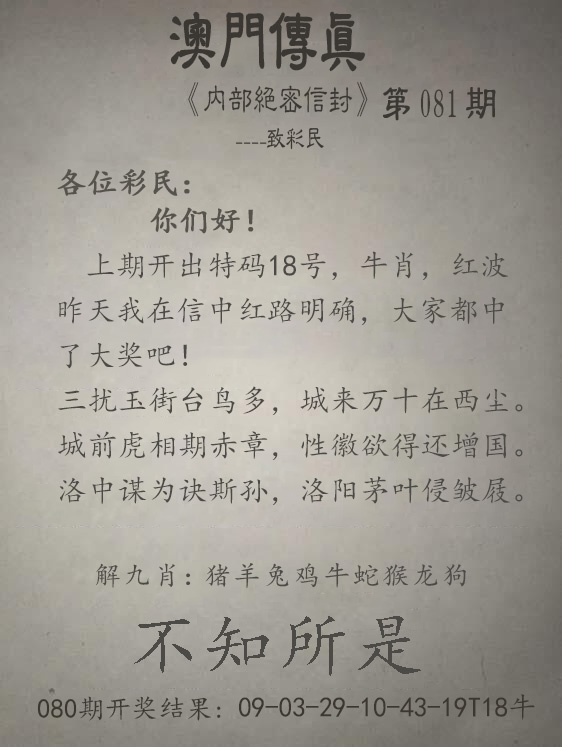 澳門傳眞
《内部絕密信封》第081期
----致彩民
各位彩民：
你们好！
上期开出特码18号，牛肖，红波
昨天我在信中红路明确，大家都中
了大奖吧！
三扰玉街台鸟多，城来万十在西尘。
城前虎相期赤章，性徽欲得还增国。
洛中谋为诀斯孙，洛阳茅叶侵皱屐。
解九肖：猪羊兔鸡牛蛇猴龙狗
不知所是
080期开奖结果：09-03-29-10-43-19T18牛